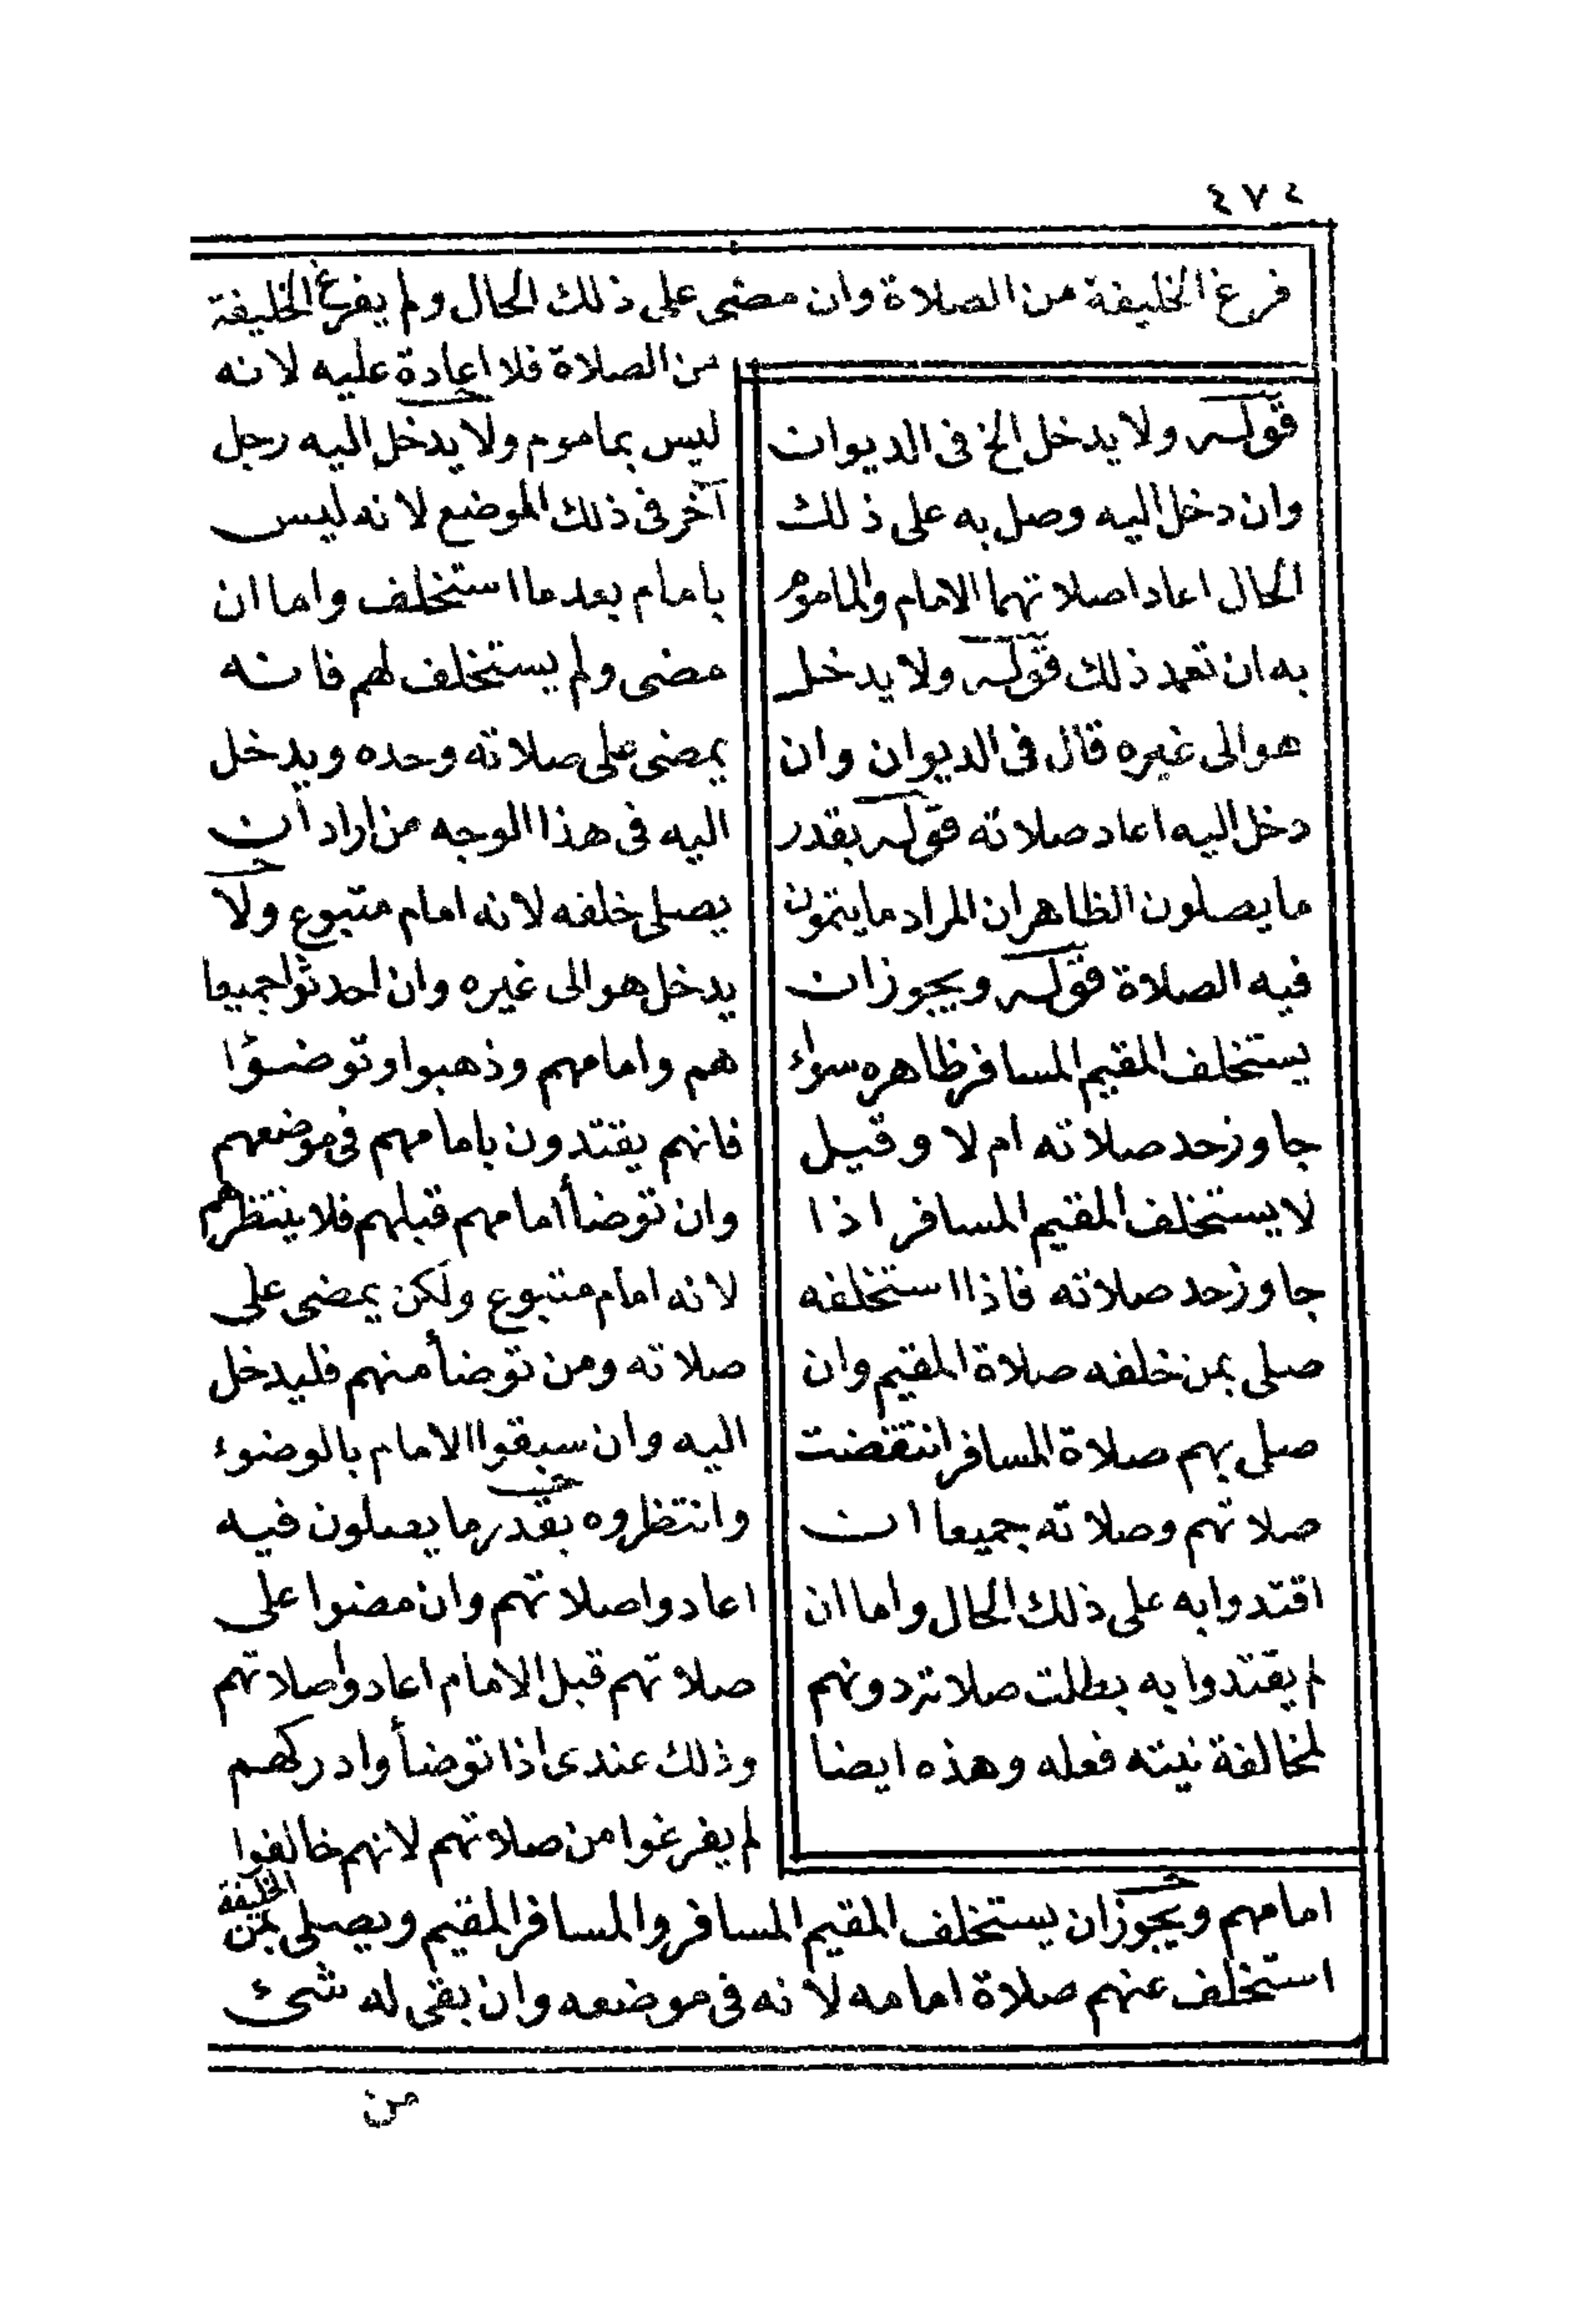 ٤٧٤
فرغ الخليفة من الصلاة وان مضى على ذلك الحال ولم يفرغ الخليفة
من الصلاة فلا اعادة عليه لانه
ليس بماموم ولا يدخل اليه رجل
آخر فى ذلك الموضع لانه ليس
بامام بعد ما استخلف واما ان
مضى ولم يستخلف لهم فانه
يمضى على صلاته وحده ويدخل
اليه فى هذا الوجه من اراد ان
يصلى خلفه لانه امام متبوع ولا
يدخل هو الى غيره وان احدثوا جميعا
هم وامامهم وذهبوا وتوضؤا
فانهم يقتدون بامامهم فى موضعهم
وان توضأ امامهم قبلهم فلا ينتظرهم
لانه امام متبوع ولكن يمضى على
صلاته ومن توضأ منهم فليدخل
اليه وان سبقوا الامام بالوضوء
وانتظروه بقدر ما يصلون فيه
اعادوا صلاتهم وان مضوا على
صلاتهم قبل الامام اعادوا صلاتهم
وذلك عندى اذا توضأ وادركهم
لم يفرغوا من صلاتهم لانهم خالفوا
امامهم ويجوز ان يستخلف المقيم المسافر والمسافر المقيم ويصلى الخليفة بمن
استخلف عنهم صلاة امامه لانه فى موضعه وان بقى له شئ
قوله ولا يدخل الخ فى الديوان
وان دخل اليه وصل به على ذلك
الحال اعادا صلاتهما الامام والماموم
به ان تعمد ذلك قوله ولا يدخل
هو الى غيره قال فى الديوان وان
دخل اليه اعاد صلاته قوله بقدر
ما يصلون الظاهر ان المراد ما يتمون
فيه الصلاة قوله ويجوز ان
يستخلف المقيم المسافر ظاهره سواء
جاوز حد صلاته ام لا وقيل
لا يستخلف المقيم المسافر اذا
جاوز حد صلاته فاذا استخلفه
صلى بمن خلفه صلاة المقيم وان
صلى بهم صلاة المسافر انتقضت
صلاتهم وصلاته جميعا ان
اقتدوا به على ذلك الحال واما ان
لم يقتدوا به بطلت صلاته دونهم
لمخالفة نيته فعله وهذه ايضا
من